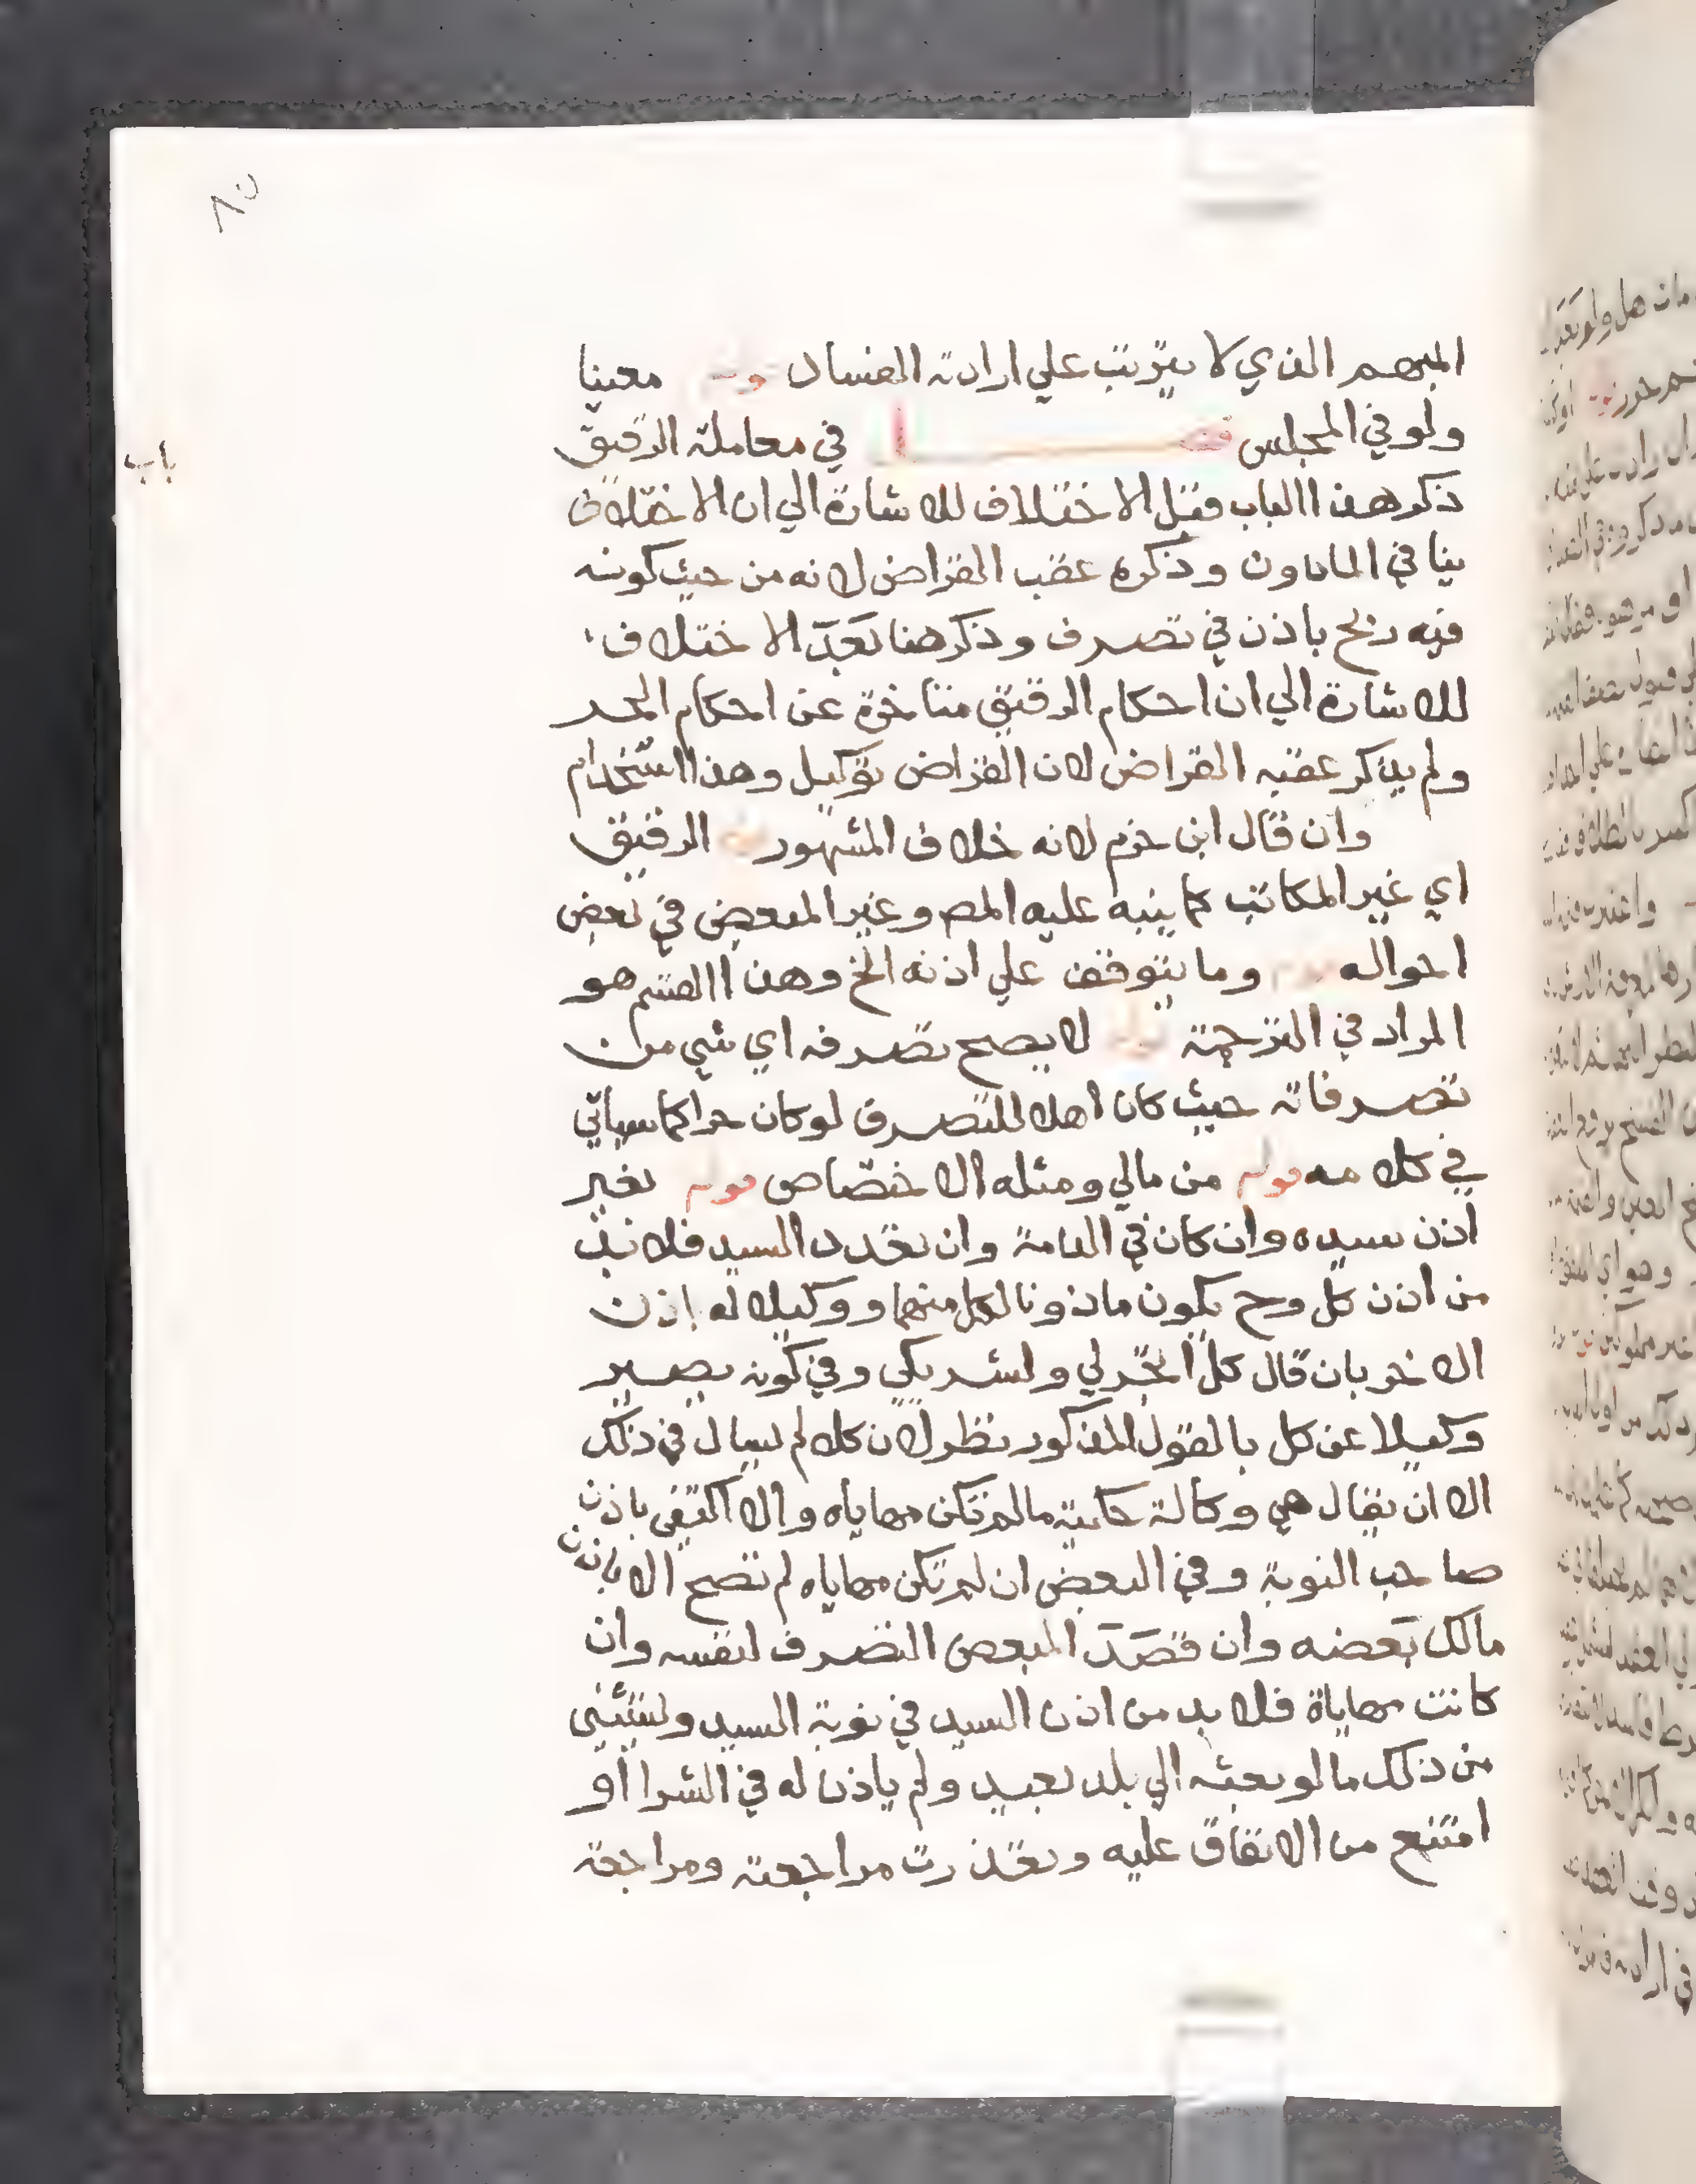 ٨٥
المبهم الذي لا يترتب علي ارادته الفساد قوله معينا
ولو في المجلس فصل في معاملة الرقيق
باب
ذكر هذا الباب قبل الاختلاف للاشارة الي ان الاختلاف
ياتي في الماذون وذكره عقب القراض لانه من حيث كونه
فيه ربح باذن في تصرف وذكر هنا بعد الاختلاف
للاشارة الي ان احكام الرقيق متاخرة عن احكام الحر
ولم يذكر عقبه القراض لان القراض توكيل وهذا استخدام
وان قال ابن حزم لانه خلاف المشهور الرقيق
اي غير المكاتب كما ينبه عليه المص وغير المبعض في بعض
احواله قوله وما يتوقف علي اذنه الخ وهذا القسم هو
المراد في الترجمة قوله لا يصح تصرفه اي شي من
تصرفاته حيث كان اهلا للتصرف لو كان حرا كما سياتي
في كلامه قوله من مالي ومثله الاختصاص قوله بغير
اذن سيده وان كان في العامة وان تعدد السيد فلا بد
من اذن كل وح يكون ماذونا لكل منهما ووكيلا له باذن
الاخر بان قال كل اتجر لي ولشريكي وفي كونه يصير
وكيلا عن كل بالقول المذكور نظر لان كلا لم يسال في ذلك
الا ان يقال هي وكالة حكمية مالم تكن مهاياه والا اكتفي باذن
صاحب النوبة وفي البعض ان لم تكن مهاياه لم تصح الا باذن
مالك بعضه وان قصد المبعض التصرف لنفسه وان
كانت مهاياة فلا بد من اذن السيد في نوبة السيد ويستثني
من ذلك ما لو بعثه الي بلد بعيد ولم ياذن له في الشرا او
امتنع من الانفاق عليه وتعذرت مراجعته ومراجعة